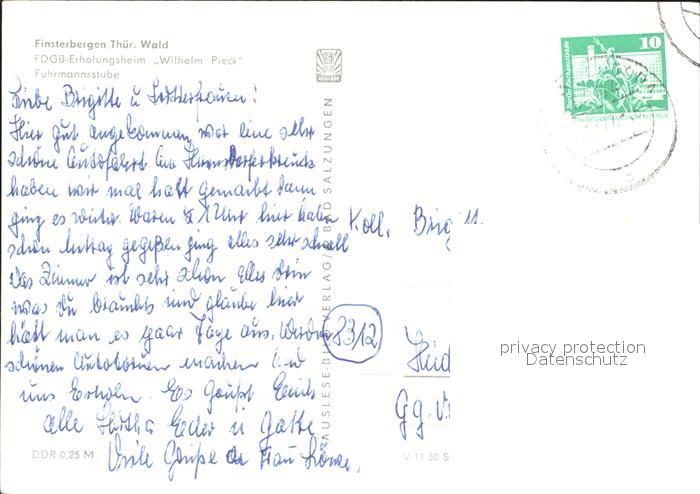 Finsterbergen Thür. Wald
FDGB-Erholungsheim „Wilhelm Pieck"
Fuhrmannsstube
Liebe Brigitte u
Hier gut angekommen war eine sehr
schöne Autofahrt. Am Hermsdorferkreuz
haben wir mal halt gemacht dann
ging es weiter. Waren 1 Uhr hier haben
schon Mittag gegeßen ging alles sehr schnell
Das Zimmer ist sehr schön alles drin
was Du brauchst und glaube hier
hält man es paar Tage aus. Werden
schönen Autotouren machen und
uns Erholen. Es Grüßt Euch
alle Hertha Eder u Gatte
Viele Grüße an Frau
DDR 0,25 M
AUSLESE-BILD-VERLAG/ BAD SALZUNGEN
10
Berlin-Rathausstraße
Koll. Brigitt
8312
Heid
Gg.
V 11 50 S
privacy protection
Datenschutz